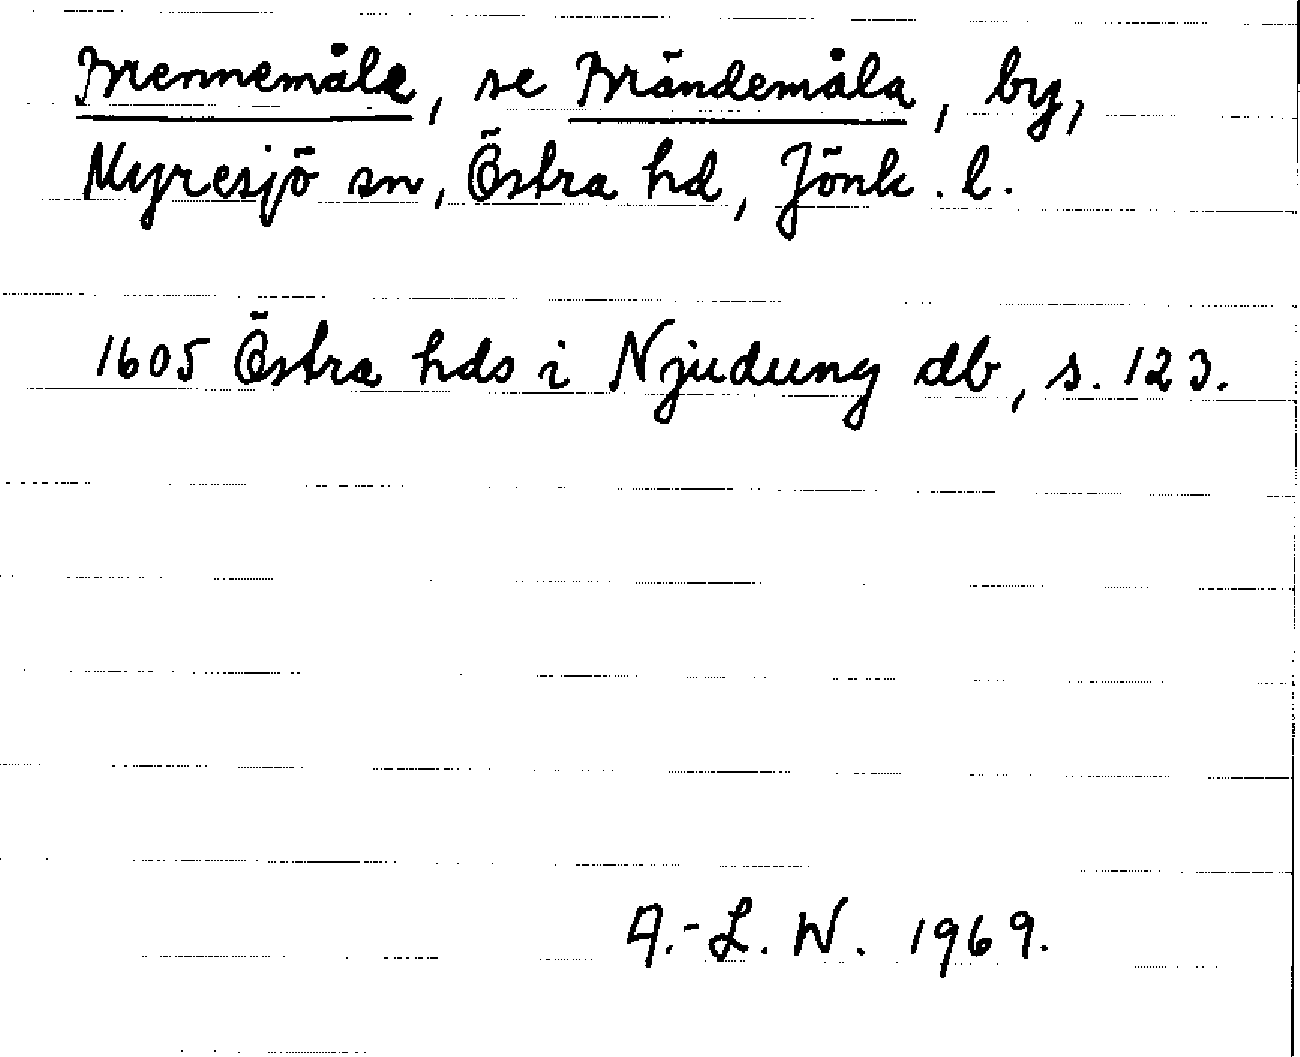 Brennemåla, se Brändemåla, by,
Myresjö sn, Östra hd, Jönk. l.
1605 Östra hds i Njudung db, s. 123.
A.-L. W. 1969.